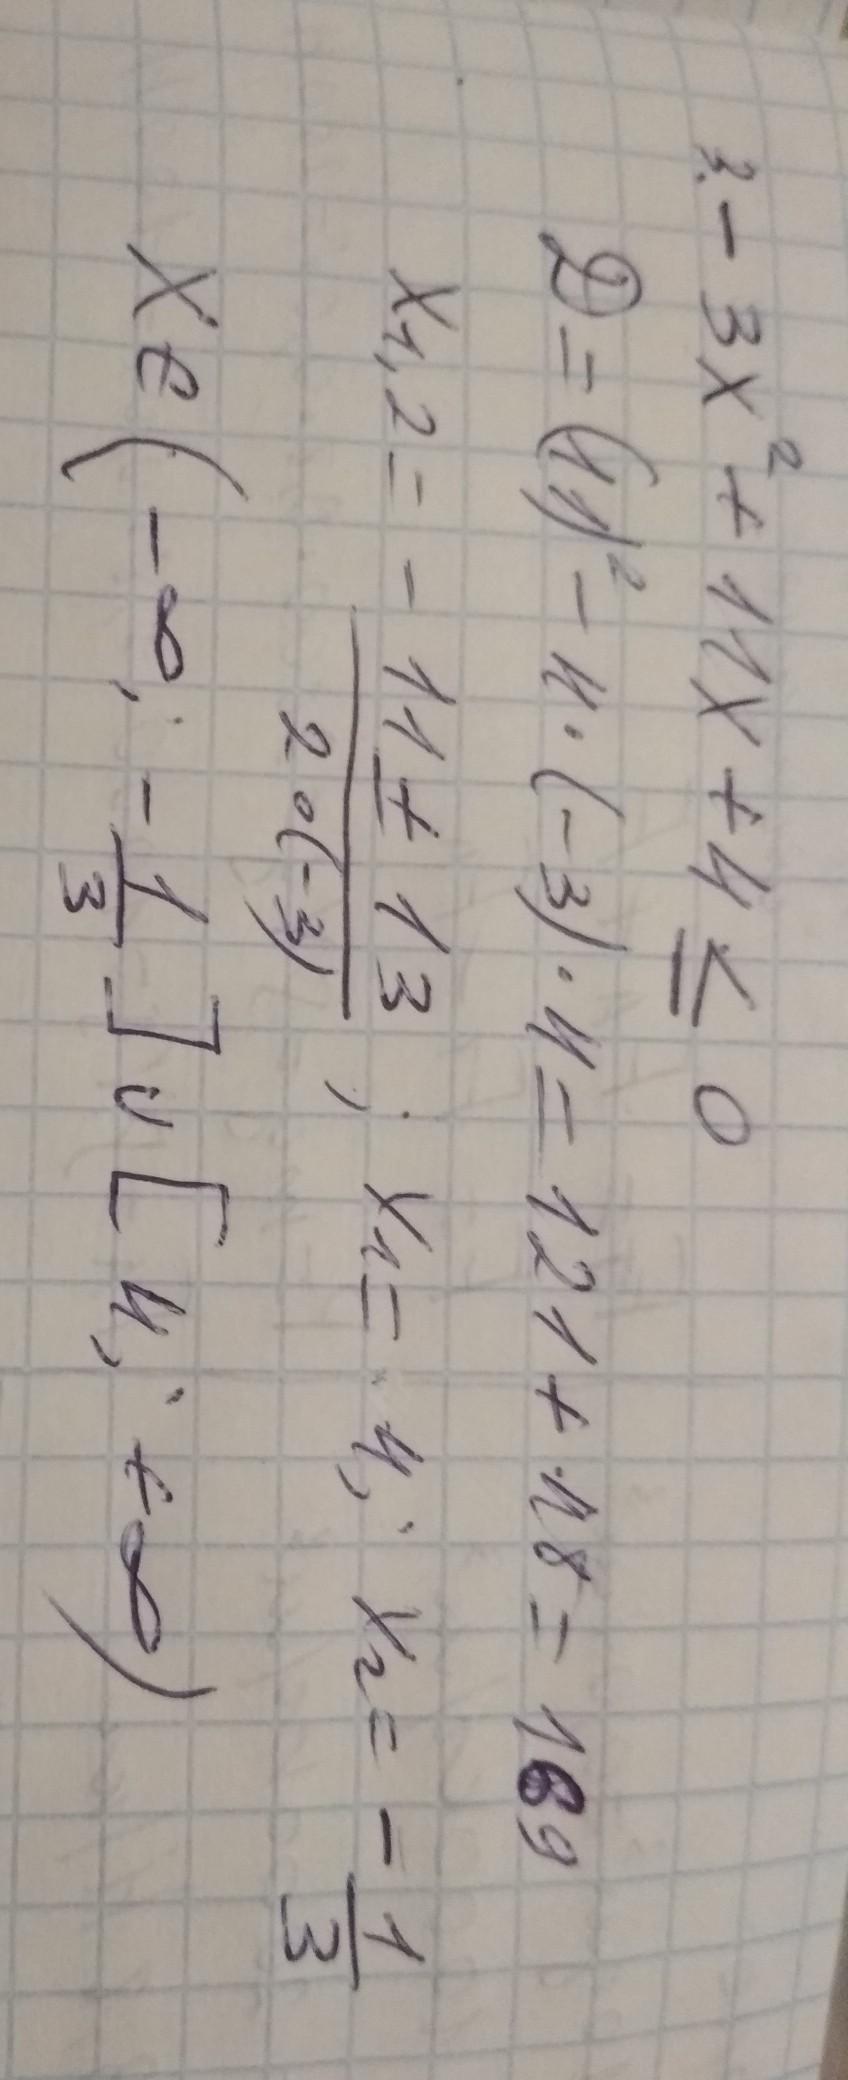 3. - 3x² + 11x + 4 ≤ 0
D = (11)² - 4 · (-3) · 4 = 121 + 48 = 169
x₁,₂ = (- 11 ± 13) / (2 · (-3)) ; x₁ = 4; x₂ = - 1/3
x ∈ (-∞; - 1/3] ∪ [4; +∞)